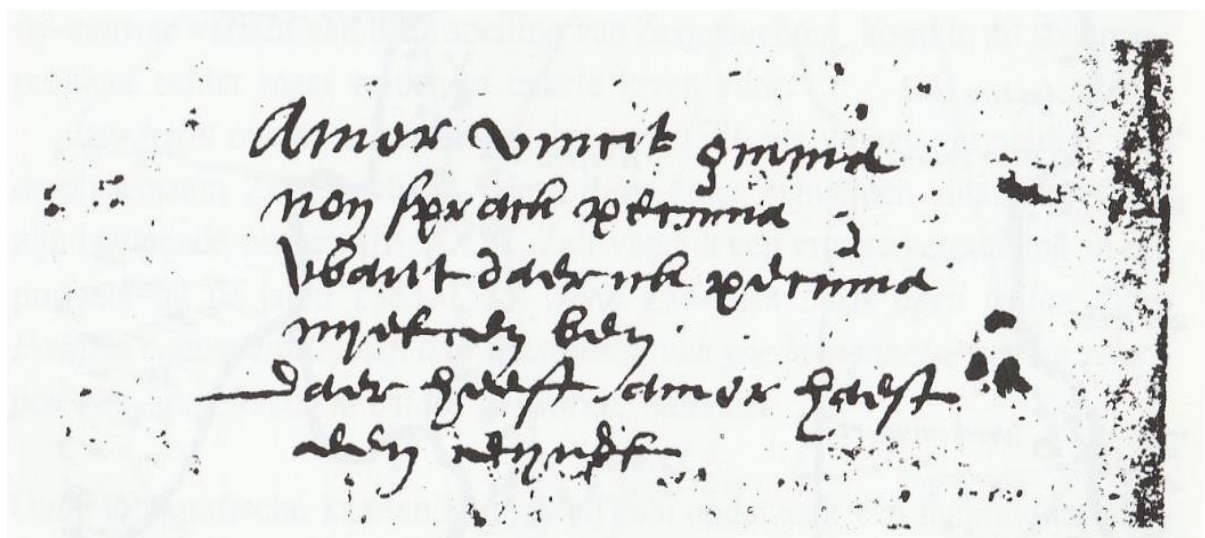 Amor vincit omnia
non sprack pecunia
Want daer ick pecunia
nyet en ben
daer heeft amor haest
een eynde